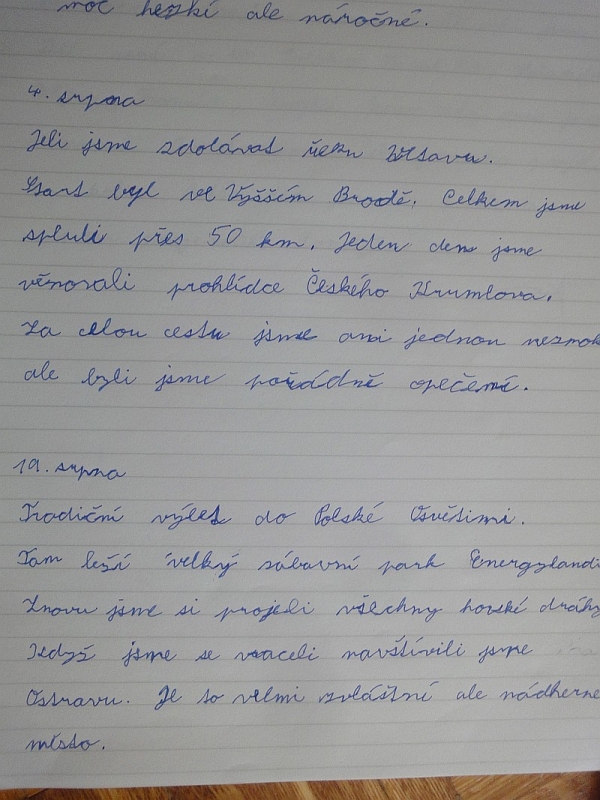 moc hezkí ale náročné.
4. srpna
Jeli jsme zdolávat řeku Vltavu.
Start byl ve Vyšším Brodě. Celkem jsme
spluli přes 50 km. Jeden den jsme
věnovali prohlídce Českého Krumlova.
Za celou cestu jsme ani jednou nezmok
ale byli jsme pořádně opečení.
19. srpna
Tradiční výlet do Polské Osvětimi.
Tam leží velký zábavní park Energylandi
Znovu jsme si projeli všechny horské dráhy
Když jsme se vraceli navštívili jsme
Ostravu. Je to velmi zvláštní ale nádherné
místo.